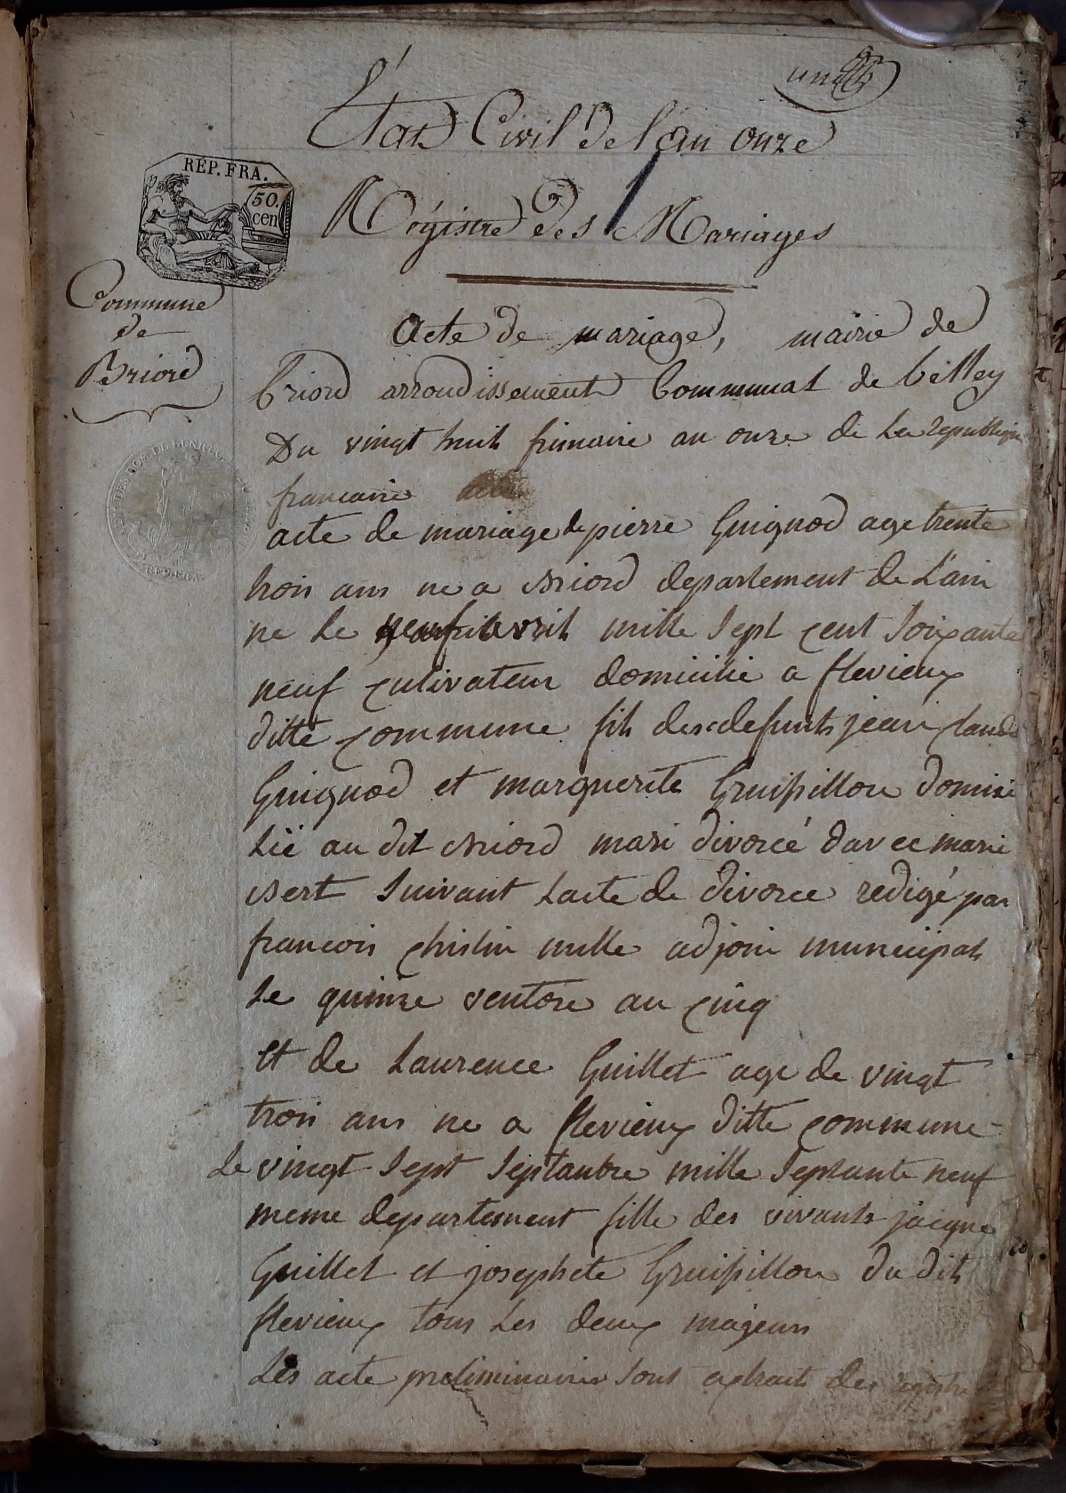 Etat Civil de l'an onze
REP. FRA.
50.
cen
Régistre des Mariages
Commune
de
Briord
acte de mariage, mairie de
briord arrondissement Communal de belley
Du vingt huit frimaire an onze de La republique
francaise
acte de mariage de pierre Guignod age trente
trois ans ne a Briord departement de L'ain
ne Le neuf avril mille Sept cent Soixante
neuf cultivateur domicilié a flevieux
ditte commune fils des defunts jean claude
Guignod et marguerite Gruissillon domici
Lié au dit Briord mari divorcé davec marie
Bert Suivant Lacte de divorce redigé par
francois mille adjoin municipal
Le quinze ventose an cinq
Et de Laurence Guillet age de vingt
trois ans ne a flevieux ditte commune
Le vingt Sept Septanbre mille Septante neuf
meme departement fille des vivants jacque
Guillet et josephete Gruissillon du dit
flevieux tous Les deux majeurs
Les acte preliminaires Sont extrait des registre